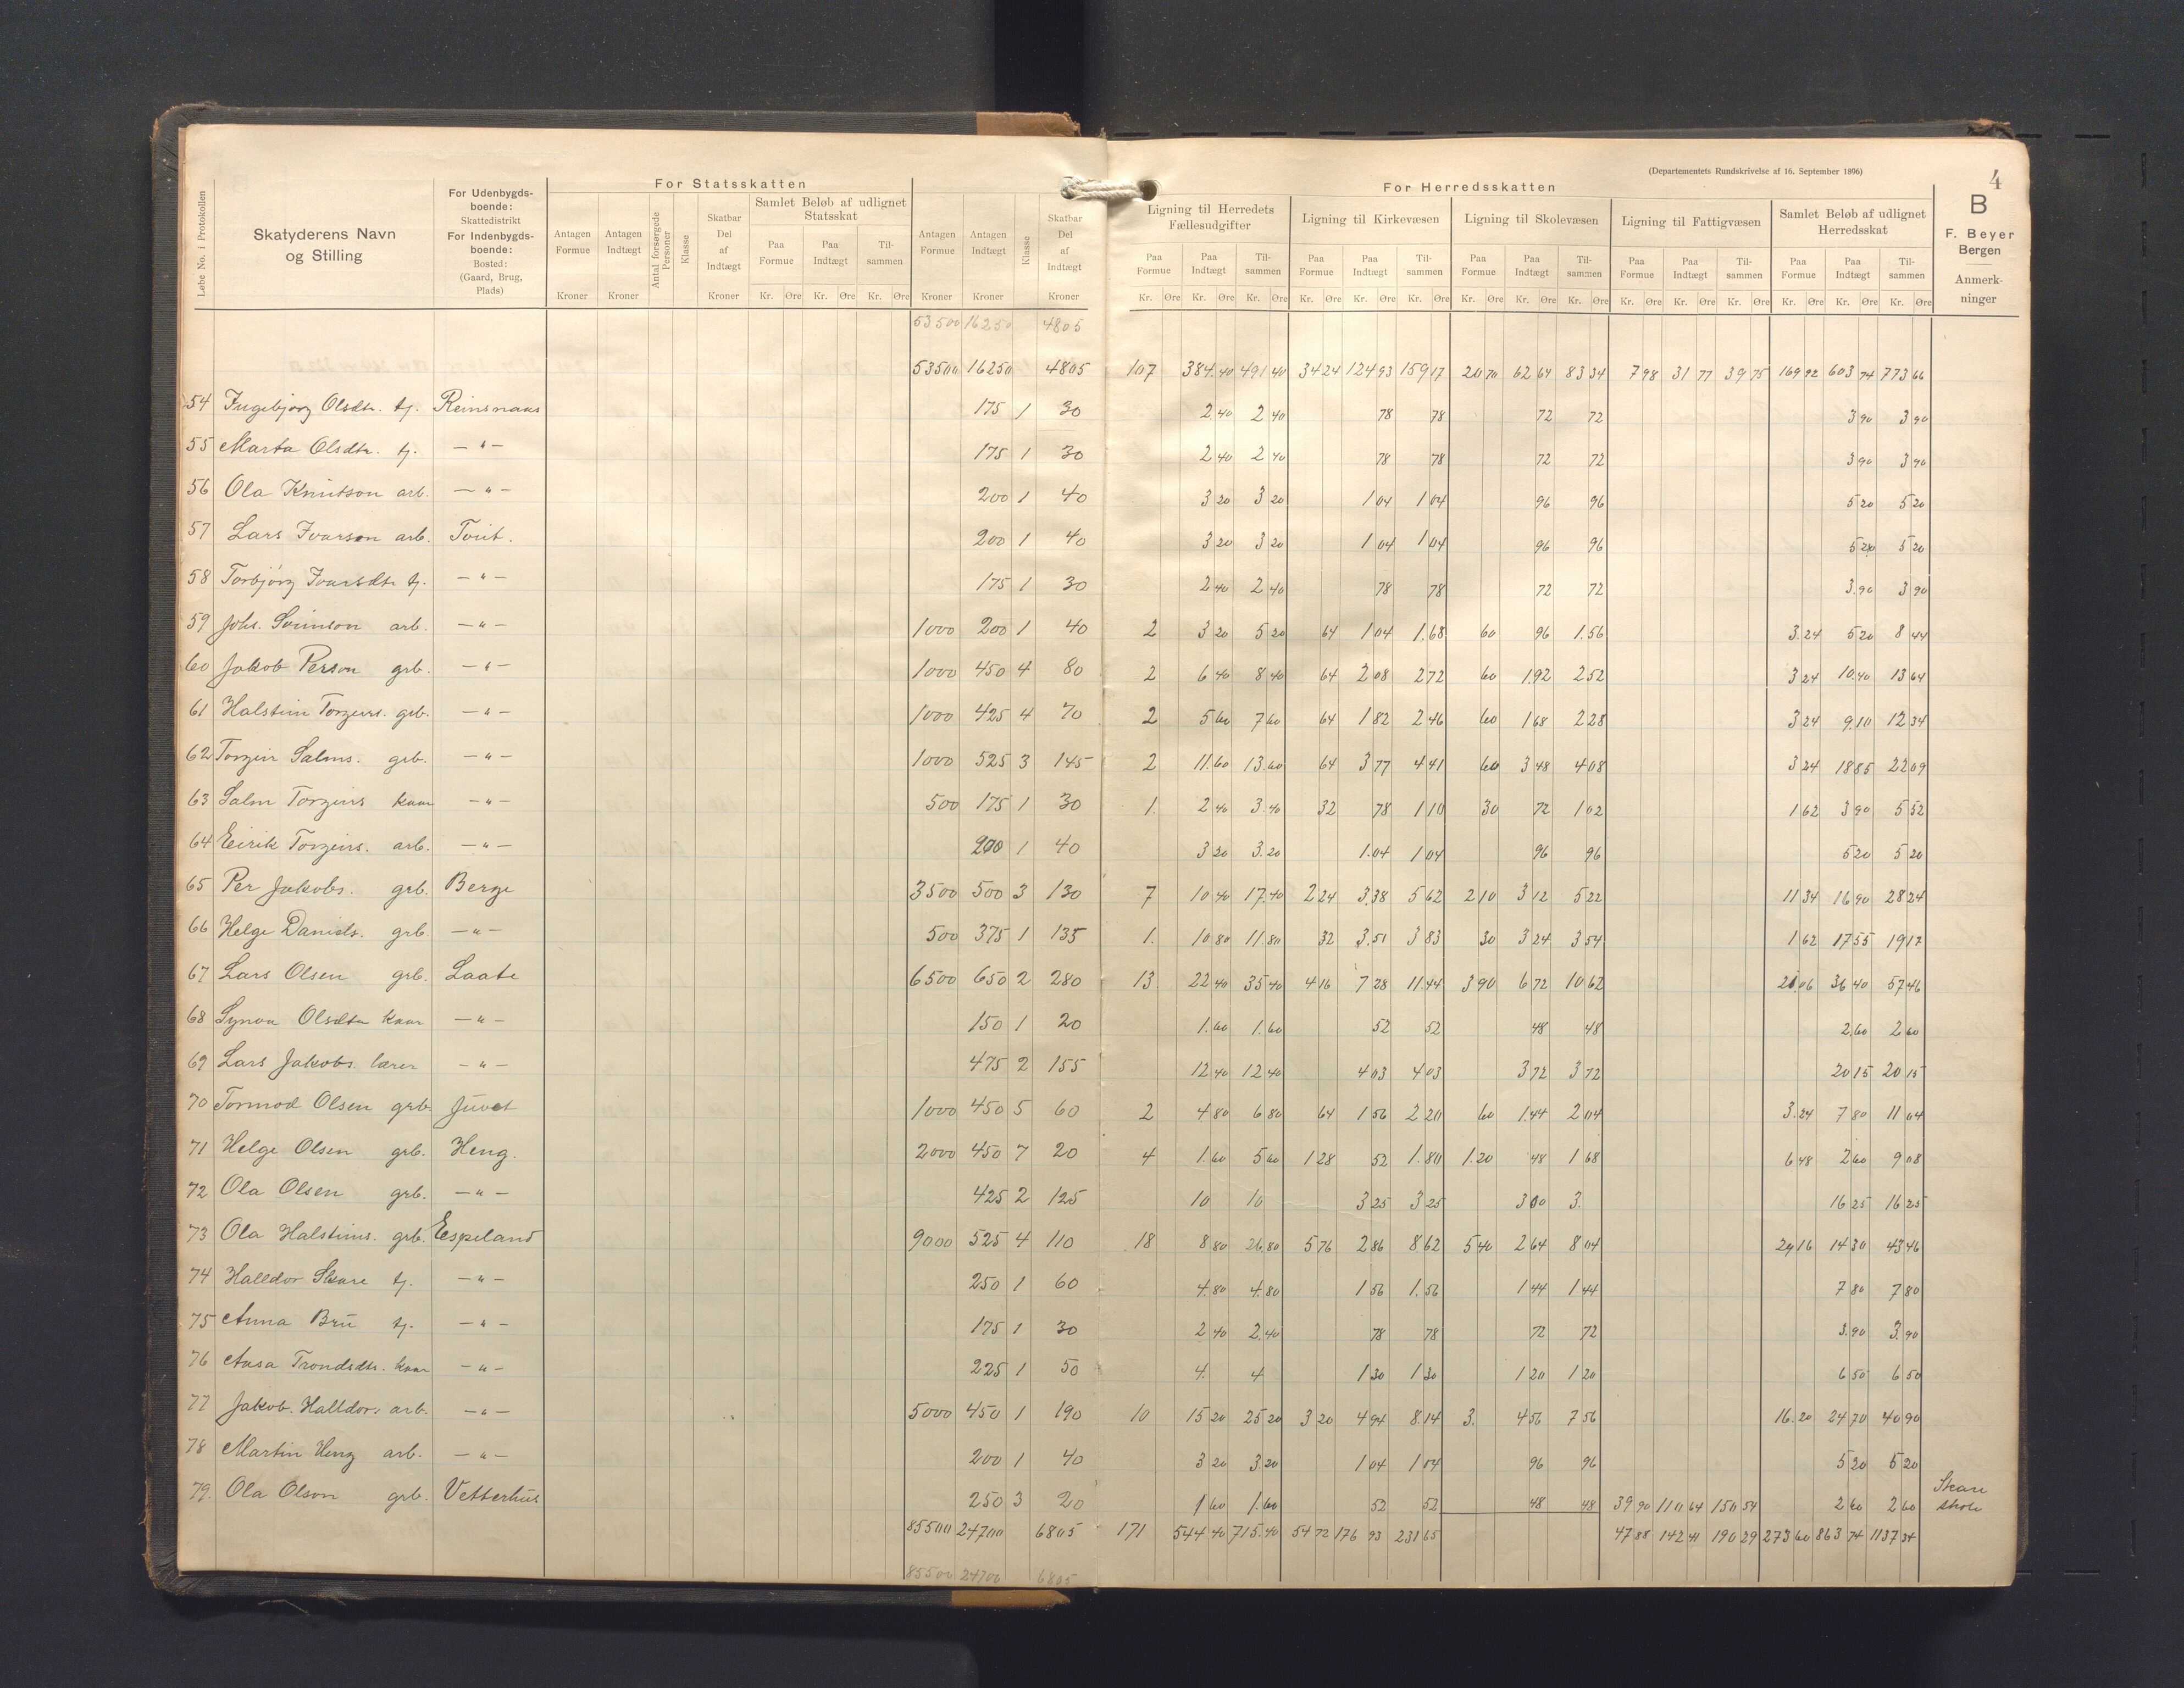 (Departementets Rundskrivelse af 16. September 1896) 4
For Statsskatten For Herredsskatten B
F. Beyer
Bergen
Løbe No. i Protokollen
Skatyderens Navn og Stilling
For Udenbygdsboende: Skattedistrikt For Indenbygdsboende: Bosted: (Gaard, Brug, Plads)
Antagen Formue Kroner Antagen Indtægt Kroner Antal forsørgede Personer Klasse Skatbar Del af Indtægt Kroner
Samlet Beløb af udlignet Statsskat Paa Formue Kr. Øre Paa Indtægt Kr. Øre Tilsammen Kr. Øre
Antagen Formue Kroner Antagen Indtægt Kroner Klasse Skatbar Del af Indtægt Kroner
Ligning til Herredets Fællesudgifter Paa Formue Kr. Øre Paa Indtægt Kr. Øre Tilsammen Kr. Øre
Ligning til Kirkevæsen Paa Formue Kr. Øre Paa Indtægt Kr. Øre Tilsammen Kr. Øre
Ligning til Skolevæsen Paa Formue Kr. Øre Paa Indtægt Kr. Øre Tilsammen Kr. Øre
Ligning til Fattigvæsen Paa Formue Kr. Øre Paa Indtægt Kr. Øre Tilsammen Kr. Øre
Samlet Beløb af udlignet Herredsskat Paa Formue Kr. Øre Paa Indtægt Kr. Øre Tilsammen Kr. Øre
Anmerkninger
53500 16250 4805
53500 16250 4805 107 384.40 491 40 34 24 124 93 159 17 20 70 62 64 83 34 7 98 31 77 39 75 169 92 603 74 773 66
54 Ingebjørg Olsdtr. tj. Reinsnaas 175 1 30 2.40 2 40 78 78 72 72 3 90 3 90
55 Marta Olsdtr. tj. — " — 175 1 30 2 40 2 40 78 78 72 72 3 90 3 90
56 Ola Knutson arb. — " — 200 1 40 3 20 3 20 1 04 1 04 96 96 5 20 5 20
57 Lars Ivarson arb. Tveit. 200 1 40 3 20 3 20 1 04 1 04 96 96 5 20 5 20
58 Torbjörg Ivarsdtr tj. — " — 175 1 30 2 40 2 40 78 78 72 72 3.90 3 90
59 Johs. Sveinson arb. — " — 1000 200 1 40 2 3 20 5 20 64 1 04 1.68 60 96 1.56 3.24 5 20 8 44
60 Jakob Person grb. — " — 1000 450 4 80 2 6 40 8 40 64 2 08 2 72 60 1.92 2 52 3 24 10.40 13 64
61 Halstein Torgeirs. grb. — " — 1000 425 4 70 2 5 60 7 60 64 1 82 2 46 60 1 68 2 28 3 24 9.10 12 34
62 Torgeir Salms. grb. — " — 1000 525 3 145 2 11.60 13.60 64 3 77 4 41 60 3 48 4 08 3 24 18 85 22 09
63 Salm Torgeirs kaar — " — 500 175 1 30 1. 2 40 3.40 32 78 1 10 30 72 1 02 1 62 3 90 5 52
64 Eirik Torgeirs. arb. — " — 200 1 40 3 20 3.20 1.04 1 04 96 96 5 20 5 20
65 Per Jakobs. grb. Berge 3500 500 3 130 7 10 40 17.40 2 24 3.38 5 62 2 10 3 12 5 22 11 34 16 90 28 24
66 Helge Daniels. grb. — " — 500 375 1 135 1. 10.80 11.80 32 3.51 3 83 30 3 24 3 54 1 62 17 55 19 17
67 Lars Olsen grb. Laate 6500 650 2 280 13 22 40 35 40 4 16 7 28 11.44 3 90 6 72 10 62 21.06 36 40 57 46
68 Synva Olsdtr kaar — " — 150 1 20 1.60 1.60 52 52 48 48 2.60 2 60
69 Lars Jakobs. lærer — " — 475 2 155 12 40 12 40 4 03 4 03 3 72 3 72 20 15 20 15
70 Tormod Olsen grb. Juvet 1000 450 5 60 2 4 80 6 80 64 1 56 2 20 60 1.44 2 04 3.24 7 80 11 04
71 Helge Olsen grb. Heng. 2000 450 7 20 4 1.60 5 60 1 28 52 1.80 1.20 48 1 68 6 48 2 60 9 08
72 Ola Olsen grb. — " — 425 2 125 10 10 3 25 3 25 3 00 3. 16 25 16 25
73 Ola Halsteins. grb. Espeland 9000 525 4 110 18 8 80 26.80 5 76 2 86 8 62 5 40 2 64 8 04 29 16 14 30 43 46
74 Halldor Skare tj. — " — 250 1 60 4.80 4.80 1 56 1.56 1 44 1 44 7 80 7 80
75 Anna Brū tj. — " — 175 1 30 2 40 2.40 78 78 72 72 3.90 3.90
76 Aasa Trondsdtr. kaar — " — 225 1 50 4. 4 1 30 1 30 1 20 1 20 6 50 6 50
77 Jakob. Halldors arb. — " — 5000 450 1 190 10 15 20 25 20 3 20 4 94 8.14 3. 4 56 7 56 16.20 24 70 40 90
78 Martin Heng arb. — " — 200 1 40 3 20 3 20 1 04 1 04 96 96 5 20 5 20
79. Ola Olson grb. Vetterhus 250 3 20 1 60 1.60 52 52 48 48 39 90 110 64 150 54 2 60 2 60 Skare skole
85500 24700 6805 171 544 40 715.40 54 72 176 93 231 65 47 88 142 41 190 29 273 60 863 74 1137 34
85500 24700 6805